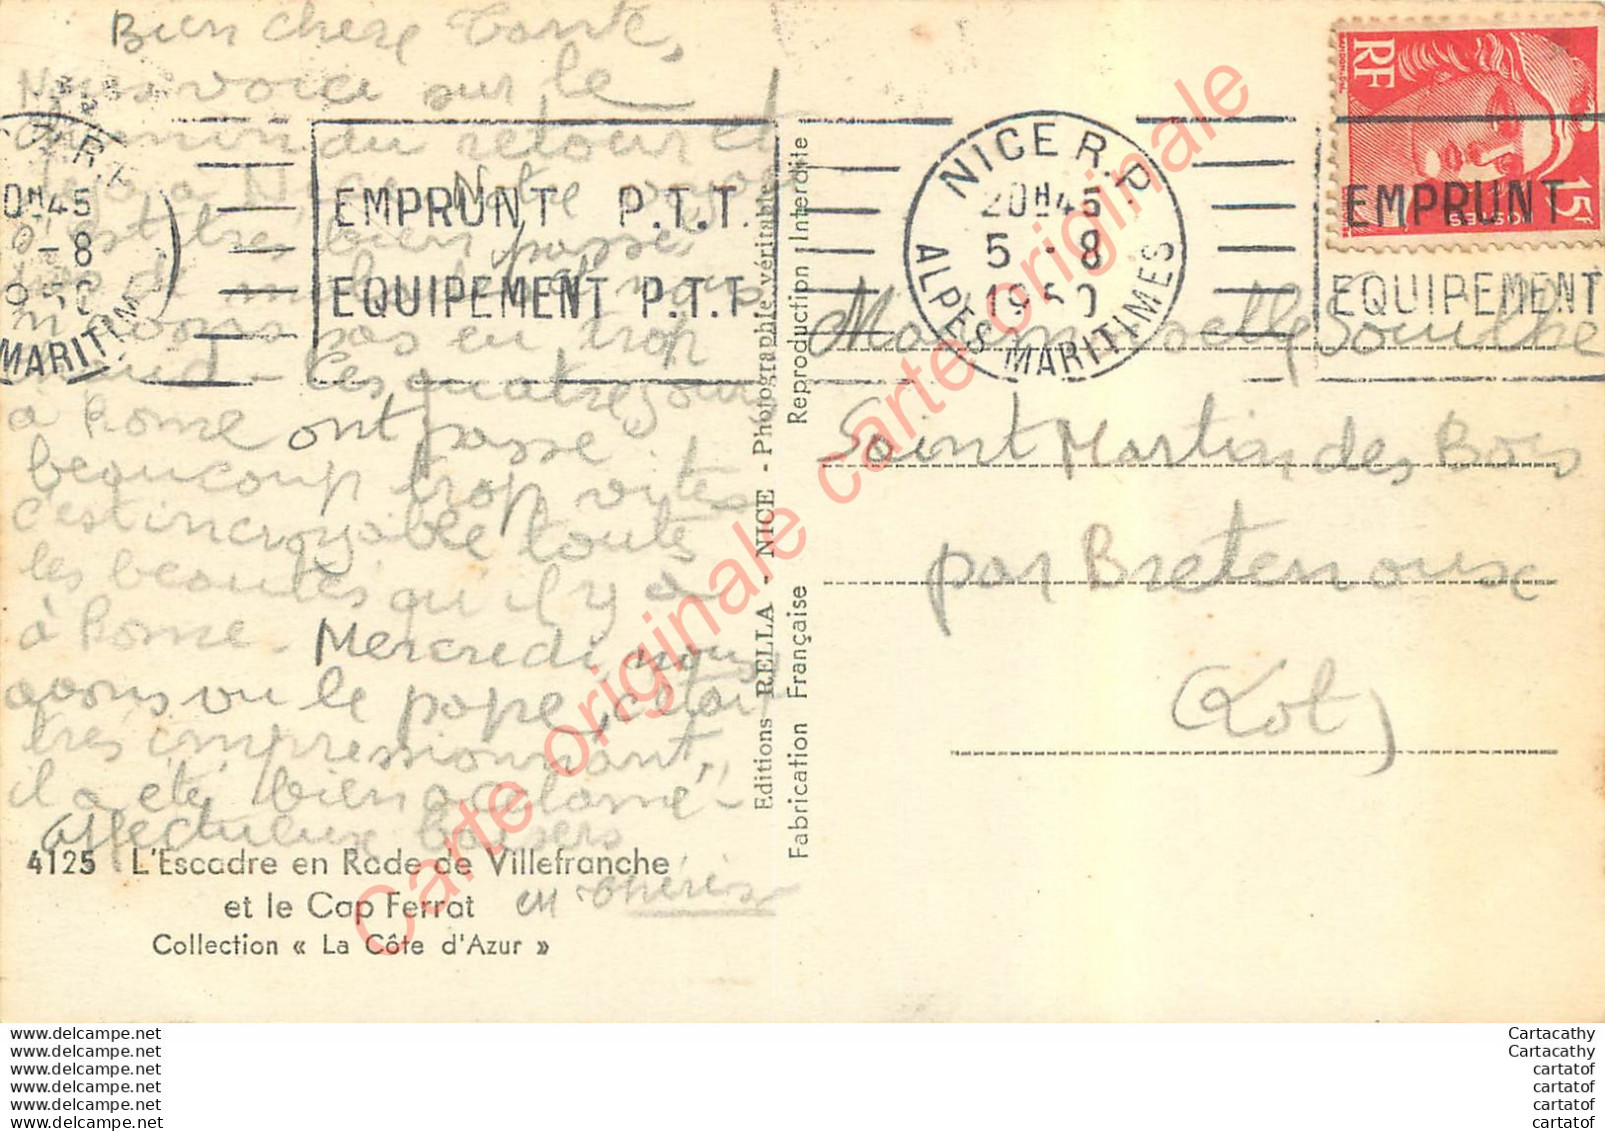 Bien chere Tante,
Nous voici sur le
chemin du retour et
a Nice Notre voyage
est très bien passé
pas de mal et nous
n'avons pas eu trop
chaud - Ces quatre jours
a Rome ont passé
beaucoup trop vites
c'est incroyable toutes
les beautés qu'il y a
à Rome. Mercredi, nous
avons vu le pape, c'etait
très impressionnant,
il a été bien acclamé -
affectueux baisers
4125 L'Escadre en Rade de Villefranche
et le Cap Ferrat
Collection « La Côte d'Azur »
M Thérèse
Editions RELLA - NICE - Photographie véritable
Fabrication Française Reproduction Interdite
EMPRUNT P.T.T.
EQUIPEMENT P.T.T.
MARITIMES
NICE R.P.
20H45
5 - 8
1950
ALPES MARITIMES
RF
15f
EMPRUNT
EQUIPEMENT
Mademoiselle
Saint Martin des Bois
par Bretenoux
(Lot)
Carte originale carte originale carte originale
www.delcampe.net
www.delcampe.net
www.delcampe.net
www.delcampe.net
www.delcampe.net
www.delcampe.net
Cartacathy
Cartacathy
cartatof
cartatof
cartatof
cartatof